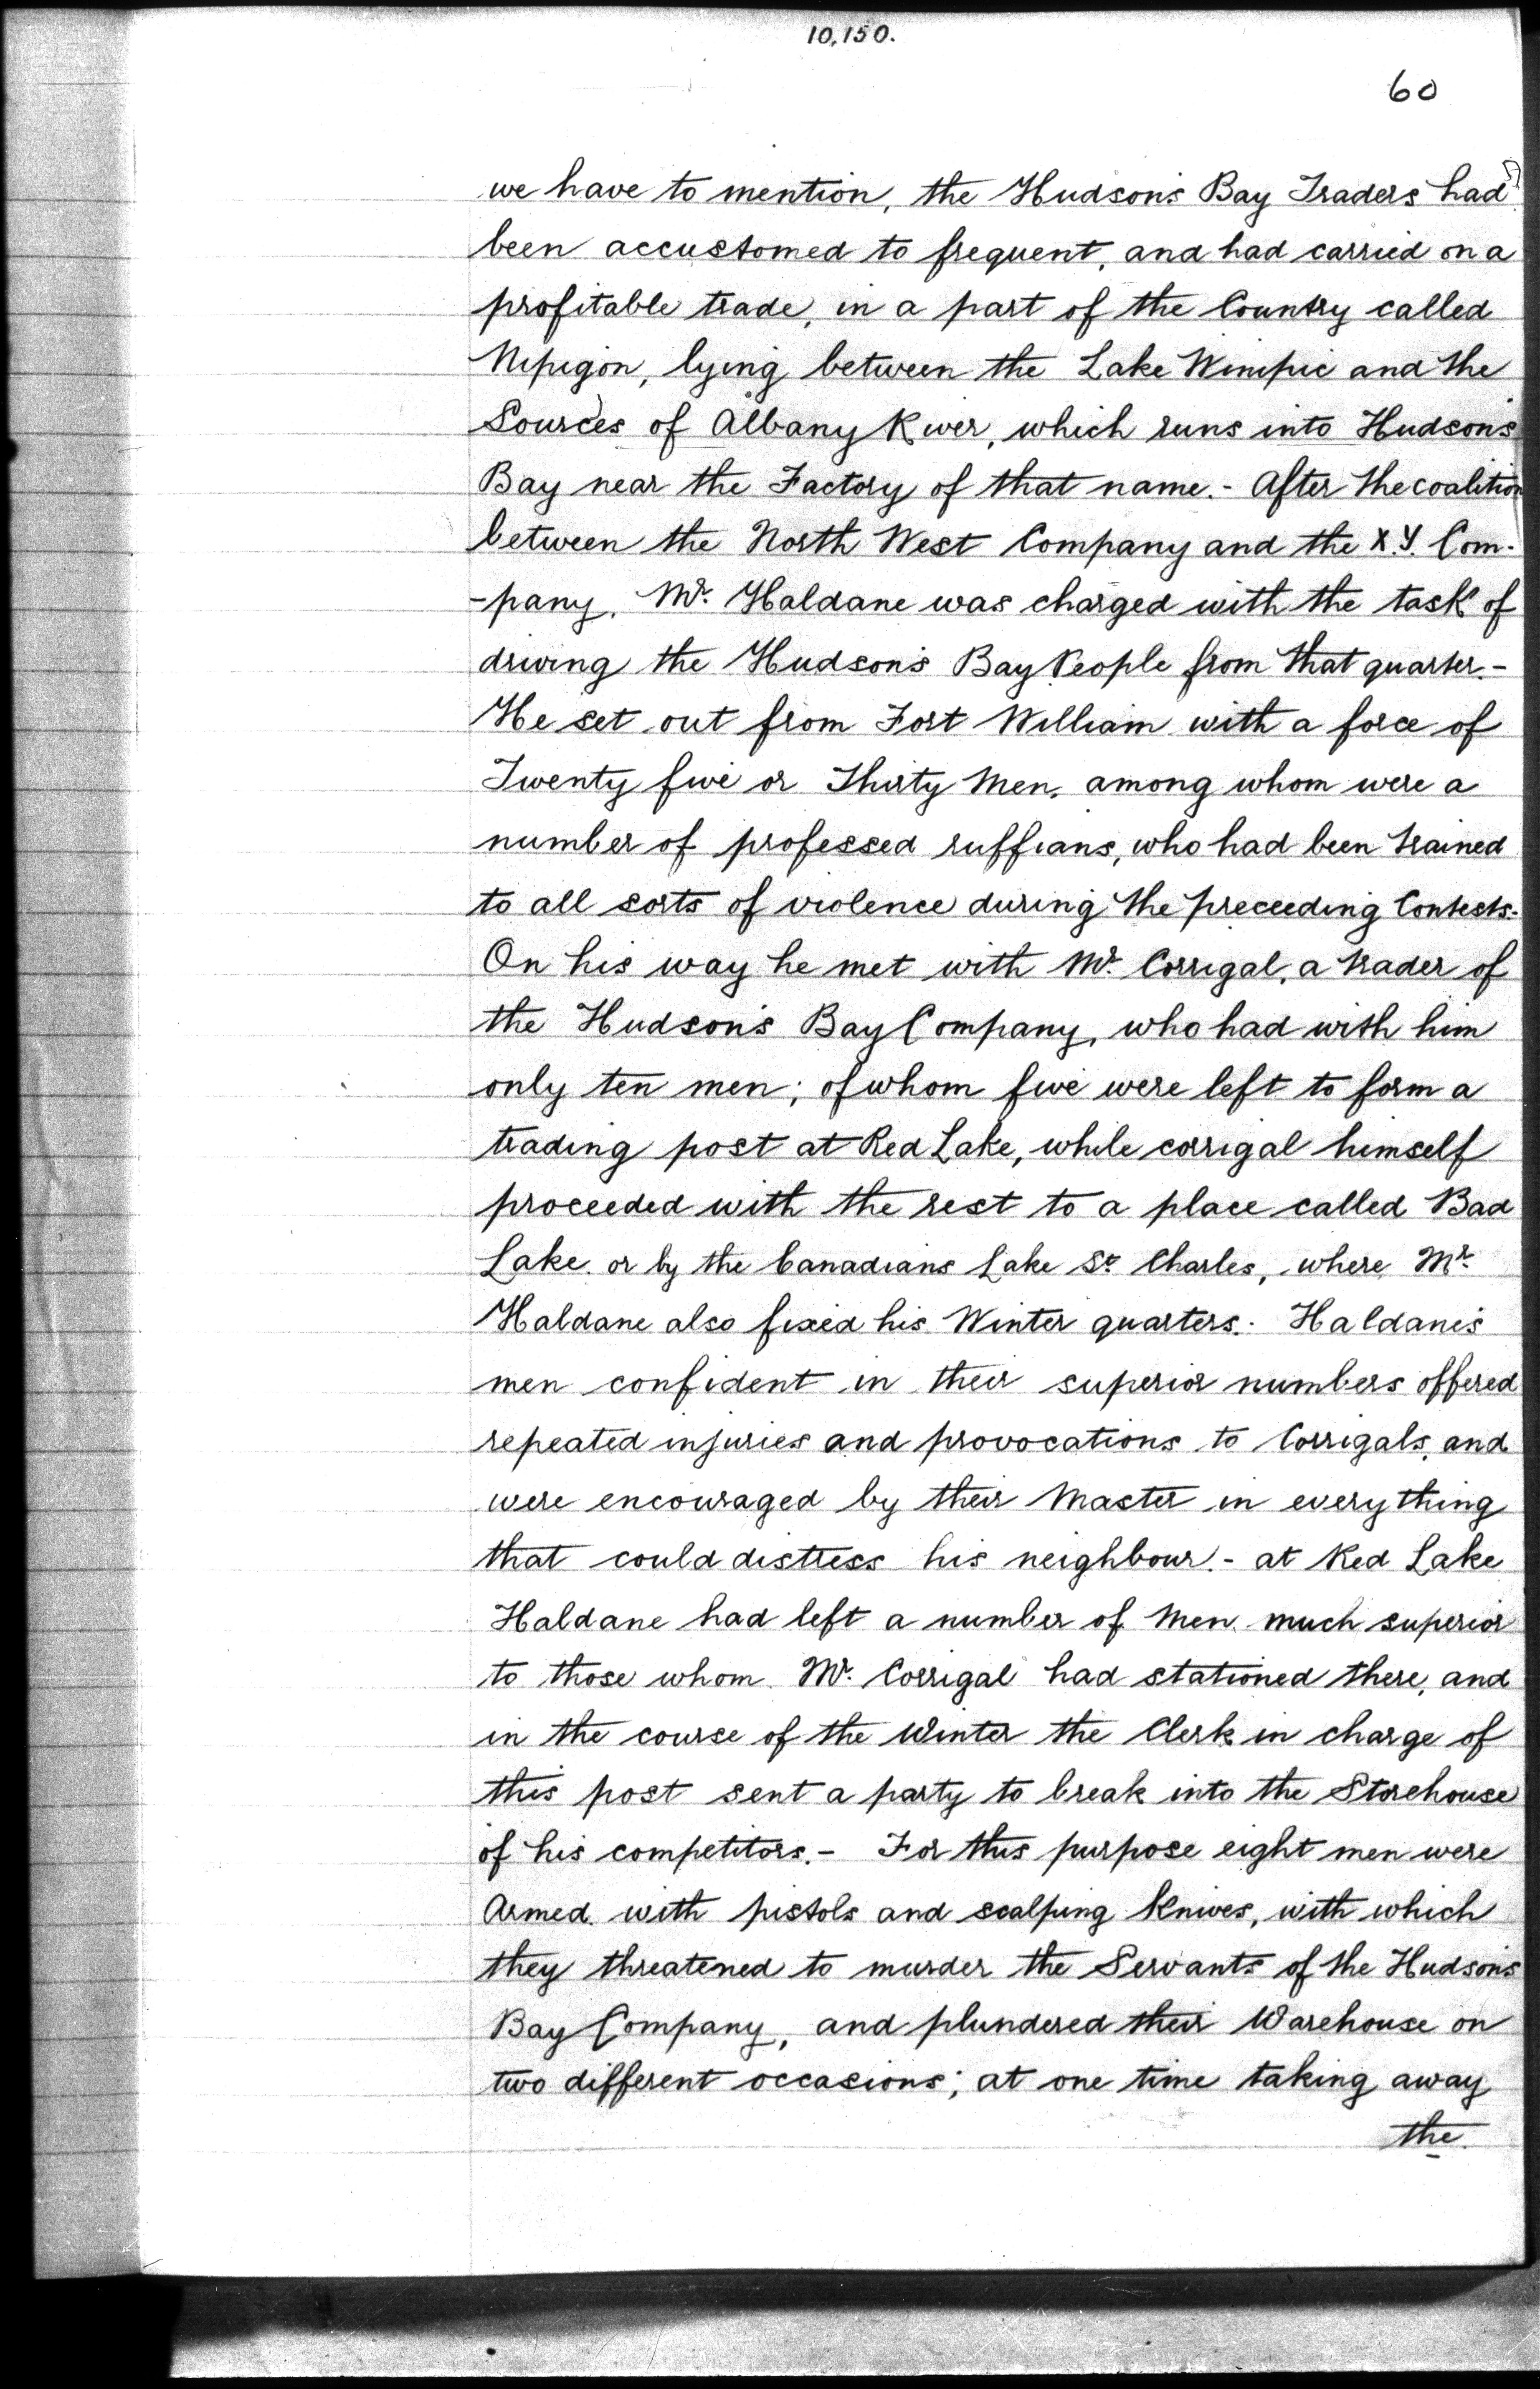 10,150.
60
we have to mention, the Hudson's Bay Traders had
been accustomed to frequent, and had carried on a
profitable trade, in a part of the Country called
Nipigon, lying between the Lake Winipic and the
Sources of Albany River, which runs into Hudson's
Bay near the Factory of that name.- After the coalition
between the North West Company and the X.Y. Com-
-pany, Mr. Haldane was charged with the task of
driving the Hudson's Bay People from that quarter.-
He set out from Fort William with a force of
Twenty five or Thirty Men, among whom were a
number of professed ruffians, who had been trained
to all sorts of violence during the preceeding Contests.
On his way he met with Mr. Corrigal, a trader of
the Hudson's Bay Company, who had with him
only ten men; of whom five were left to form a
trading post at Red Lake, while corrigal himself
proceeded with the rest to a place called Bad
Lake or by the Canadians Lake St. Charles, where Mr.
Haldane also fixed his Winter quarters.- Haldane's
men confident in their superior numbers offered
repeated injuries and provocations to Corrigals, and
were encouraged by their Master in everything
that could distress his neighbour.- at Red Lake
Haldane had left a number of Men much superior
to those whom Mr. Corrigal had stationed there, and
in the course of the Winter the Clerk in charge of
this post sent a party to break into the Storehouse
of his competitors.- For this purpose eight men were
Armed with pistols and scalping Knives, with which
they threatened to murder the Servants of the Hudson's
Bay Company, and plundered their Warehouse on
two different occasions; at one time taking away
the